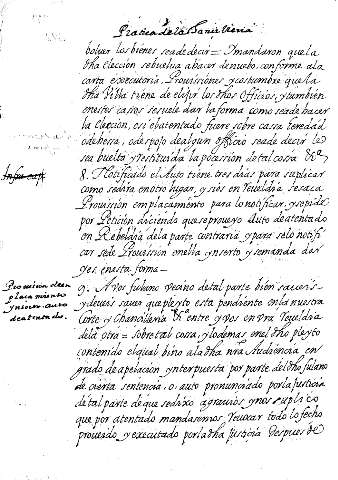 Pratica de la Chancilleria
bolver los bienes se a de decir = Y mandaron que la
dha eleccion se buelva a hacer de nuebo, conforme a la
carta executoria, Provisiones, y costumbre que la
dha Villa tiene de elejir los dhos officios, y tambien
en estos casos se suele dar la forma como se a de hacer
la eleccion, si el atentado fuere sobre cassa heredad
o dehesa, o despojo de algun officio se a de decir le
sea buelta y restituida la possesion de tal cossa &c
8. Notificado el Auto tiene tres dias para suplicar
como se dira en otro lugar, y si es en Reveldia se saca
Provision emplacamiento para lo notificar, y se pide
por Peticion diciendo que se proveyo Auto de atentado
en Rebeldia de la parte contraria y para se lo notifi
car se de Provision con el ynserto y se manda dar
y es en esta forma —
Provision de em
placamiento
ynserto auto
de atentado.
9. A vos fulano vecino de tal parte bien saveis
y deveis saver que pleyto esta pendiente en la nuestra
Corte y Chancilleria &c entre y vos en vra Reveldia
de la otra = Sobre tal cossa, y lo demas en el dho pleyto
contenido el qual bino a la dha nra Audiencia en
grado de apelacion ynterpuesta por parte del dho fulano
de cierta sentencia, o auto pronunciado por la Justicia
de tal parte de que se dixo agraviado y nos suplico
que por atentado mandasemos revocar todo lo fecho
proveido y executado por la dha Justicia despues de